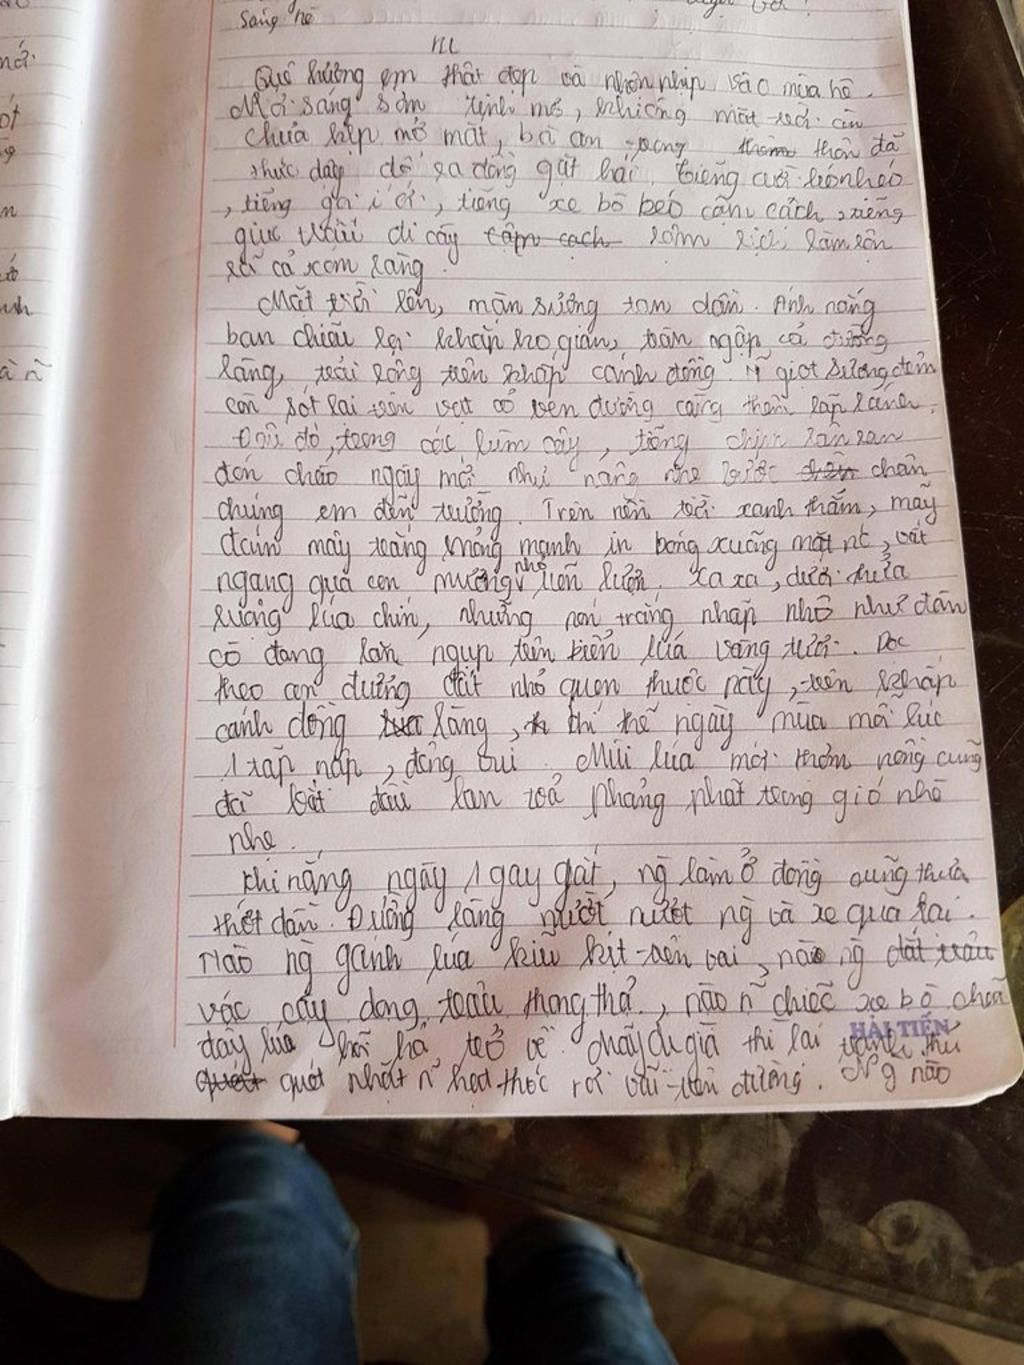 sang hè
Quê hương em thật đẹp và nhộn nhịp vào mùa hè.
Mới sáng sớm tinh mơ, khi ông mặt trời còn
chưa kịp mở mắt, bà con trong thôn đã
thức dậy để ra đồng gặt hái. Tiếng cười
, tiếng gọi í ới, tiếng xe bò kéo cầm cách, tiếng
giục trâu đi cày cầm cach rôm rịch làm rộn
rã cả xóm làng.
Mặt trời lên, màn sương tan dần. Ánh nắng
ban chiếu lại khắp ko gian, tràn ngập cả đường
làng, trải rộng trên khắp cánh đồng. N~ giọt sương đêm
còn sót lại trên vạt cỏ ven đường càng thêm lấp lánh.
Đâu đó, trong các lùm cây, tiếng chim ran ran
đón chào ngày mới như nâng nhẹ bước chân
chúng em đến trường. Trên nền trời xanh thắm, mấy
đám mây trắng mỏng manh in bóng xuống mặt nc, vắt
ngang qua con mương nhỏ uốn lượn. Xa xa, dưới thửa
ruộng lúa chín, những nón trắng nhấp nhô như đàn
cò đang lặn ngụp trên biển lúa vàng tươi. Dọc
theo con đường đất nhỏ quen thuộc này, trên khắp
cánh đồng làng, khí thế ngày mùa mỗi lúc
1 tấp nập, đông vui. Mùi lúa mới thơm nồng cũng
đã bắt đầu lan toả phảng phất trong gió nhè
nhẹ.
Khi nắng ngày 1 gay gắt, ng làm ở đồng cũng thưa
thớt dần. Đường làng nườm nượt ng và xe qua lại.
Nào ng gánh lúa kĩu kịt trên vai, nào ng dắt trâu
vác cày dong trâu thong thả, nào n~ chiếc xe bò chở
đầy lúa hối hả trở về. Mấy cụ già thì lại tranh thủ
quét quét nhặt n~ hạt thóc rơi vãi trên đường. Ng nào
HẢI TIẾN